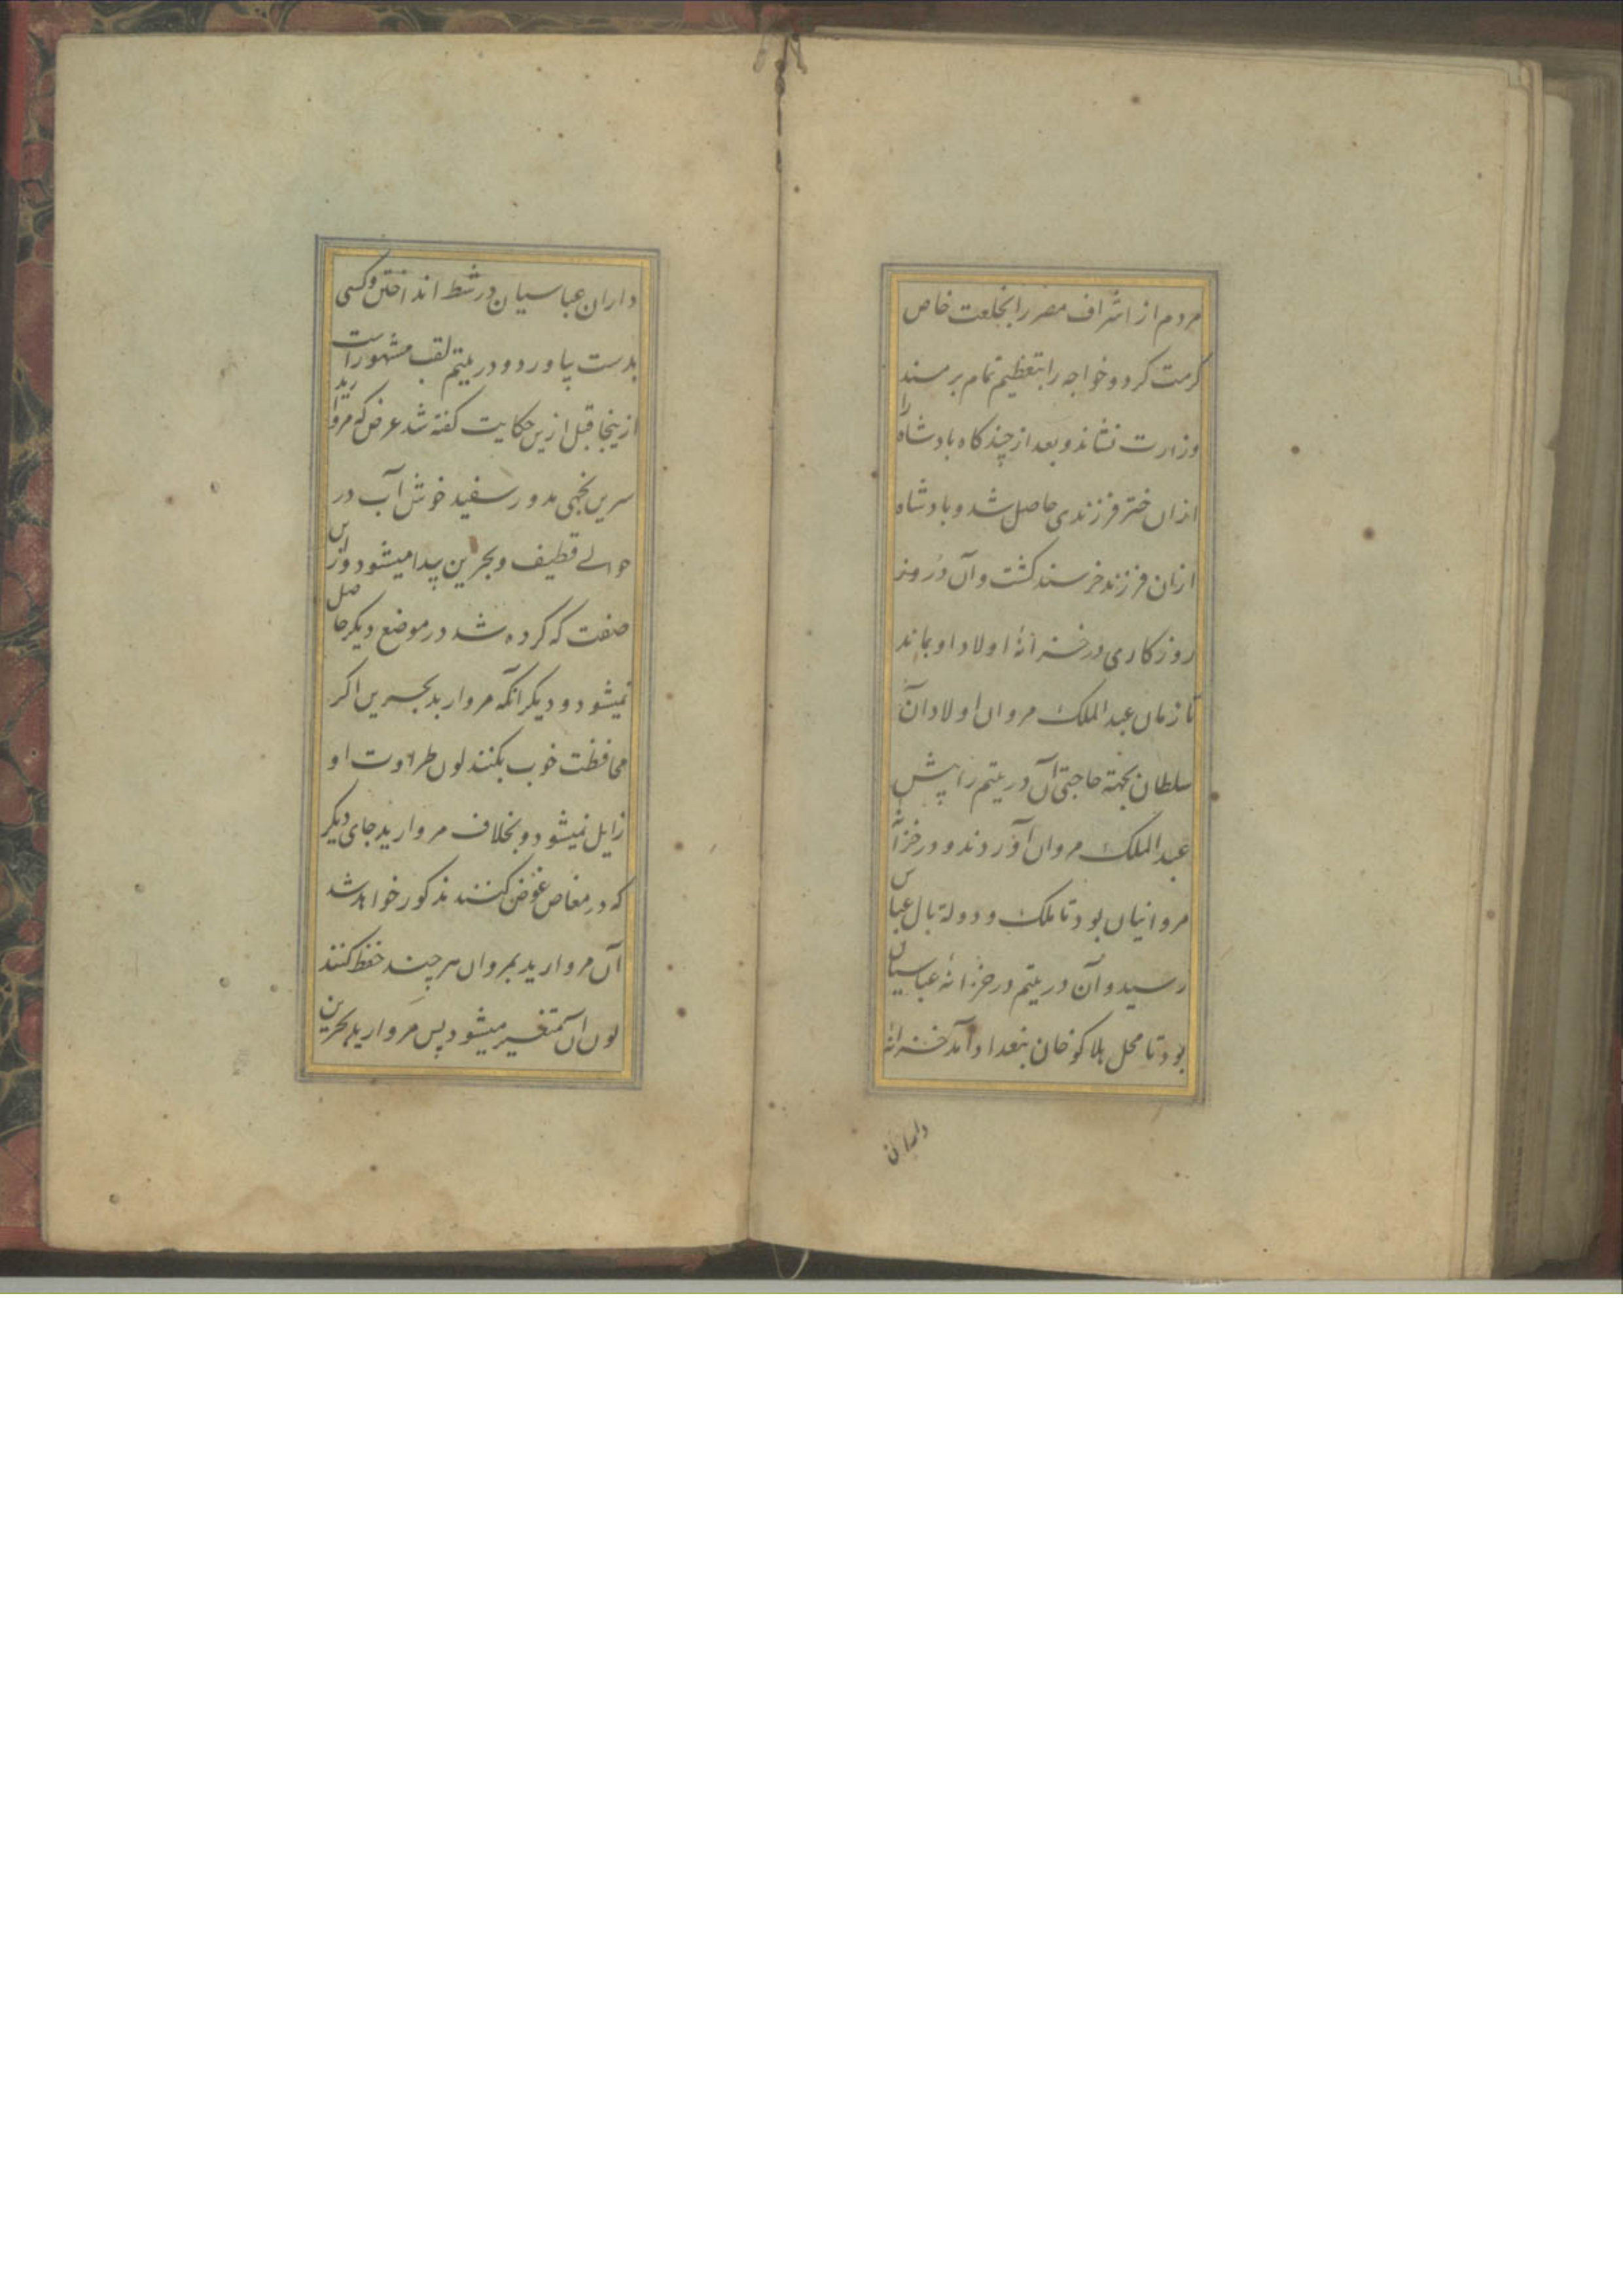 مردم از اشراف مصر را بخلعت خاص
کرمت کرد و خواجه را بتعظیم تمام بر مسند
وزارت نشاند و بعد از چند کاه بادشاه را
ازان ختر فرزندی حاصل شد و بادشاه
ازان فرزند خرسند کشت و آن در
روزکاری در خزانهٔ اولاد او بماند
تا زمان عبدالملک مروان اولاد آن
سلطان بجهة حاجتی آن در یتیم را پیش
عبدالملک مروان آوردند و در خزانهٔ
مروانیان بود تا ملک و دولة بال عباس
رسید و آن در یتیم در خزانهٔ عباسیان
بود تا محل هلاکو خان ببغداد آمد خزانه
داران
داران عباسیان در شط انداختن و کسی
بدست بیاورد و در یتیم لقب مشهور است
ازینجا قبل ازین حکایت کفته شد عرض که مروارید
سرین نجهی مدور سفید خوش آب در
حوالے قطیف و بحرین پیدا میشود و زاین
صفت که کرده شد در موضع دیکر حاصل
نمیشود و دیکر آنکه مروارید بحرین اکر
محافظت خوب بکنند لون طراوت او
زایل نمیشود و بخلاف مروارید جای دیکر
که در مغاص غوض کنند مذکور خواهد شد
آن مروارید بمروان هر چند حفظ کنند
لون آن متغیر میشود پس مروارید بحرین